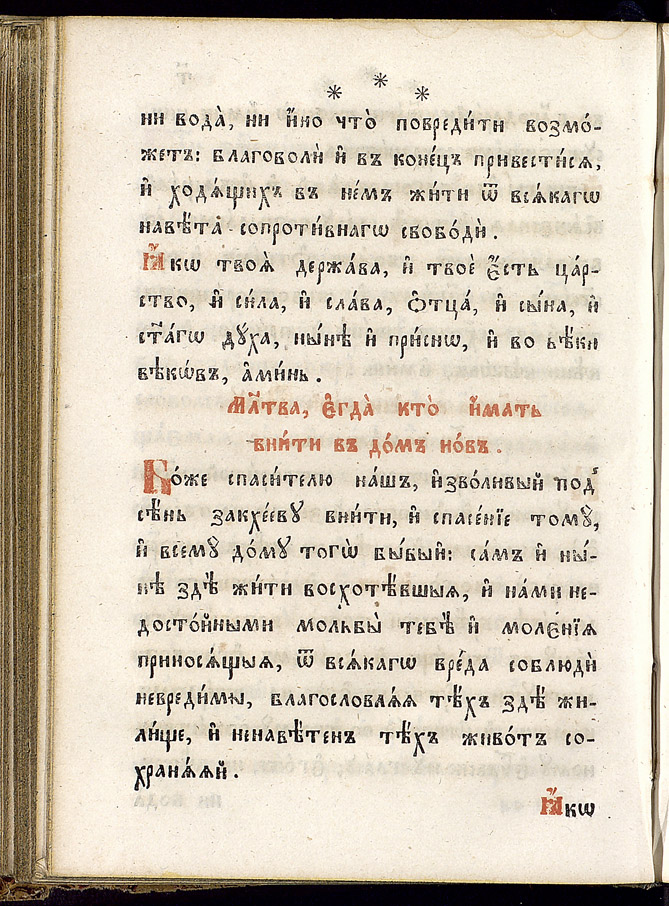 * * *
ни вода̀, ни и҆́но что̀ повреди́ти возмо́-
жетъ: благоволѝ и҆ въ коне́цъ привести́сѧ,
и҆ ходѧ́щихъ въ не́мъ жи́ти ѿ всѧ́кагѡ
навѣ́та сопроти́внагѡ свободѝ.
Ꙗ҆́кѡ твоѧ̀ держа́ва, и҆ твоѐ є҆́сть ца́р-
ство, и҆ си́ла, и҆ сла́ва, ѻ҆тца̀, и҆ сы́на, и҆
ст҃а́гѡ дꙋ́ха, ны́нѣ и҆ при́снѡ, и҆ во вѣ́ки
вѣкѡ́въ, а҆ми́нь.
Мл҃тва, є҆гда̀ кто̀ и҆́мать
вни́ти въ до́мъ но́въ.
Бо́же спаси́телю на́шъ, и҆зво́ливый под̾
сѣ́нь закхе́евꙋ вни́ти, и҆ спасе́нїе томꙋ̀,
и҆ всемꙋ̀ до́мꙋ тогѡ̀ бы́вый: са́мъ и҆ ны́-
нѣ здѣ̀ жи́ти восхотѣ́вшыѧ, и҆ на́ми не-
досто́йными мольбы̀ тебѣ̀ и҆ моле́нїѧ
приносѧ́щыѧ, ѿ всѧ́кагѡ вреда̀ соблюдѝ
невреди́мы, благословлѧ́ѧ тѣ́хъ здѣ̀ жи-
ли́ще, и҆ ненавѣ́тенъ тѣ́хъ живо́тъ со-
хранѧ́ѧй.
Ꙗ҆́кѡ